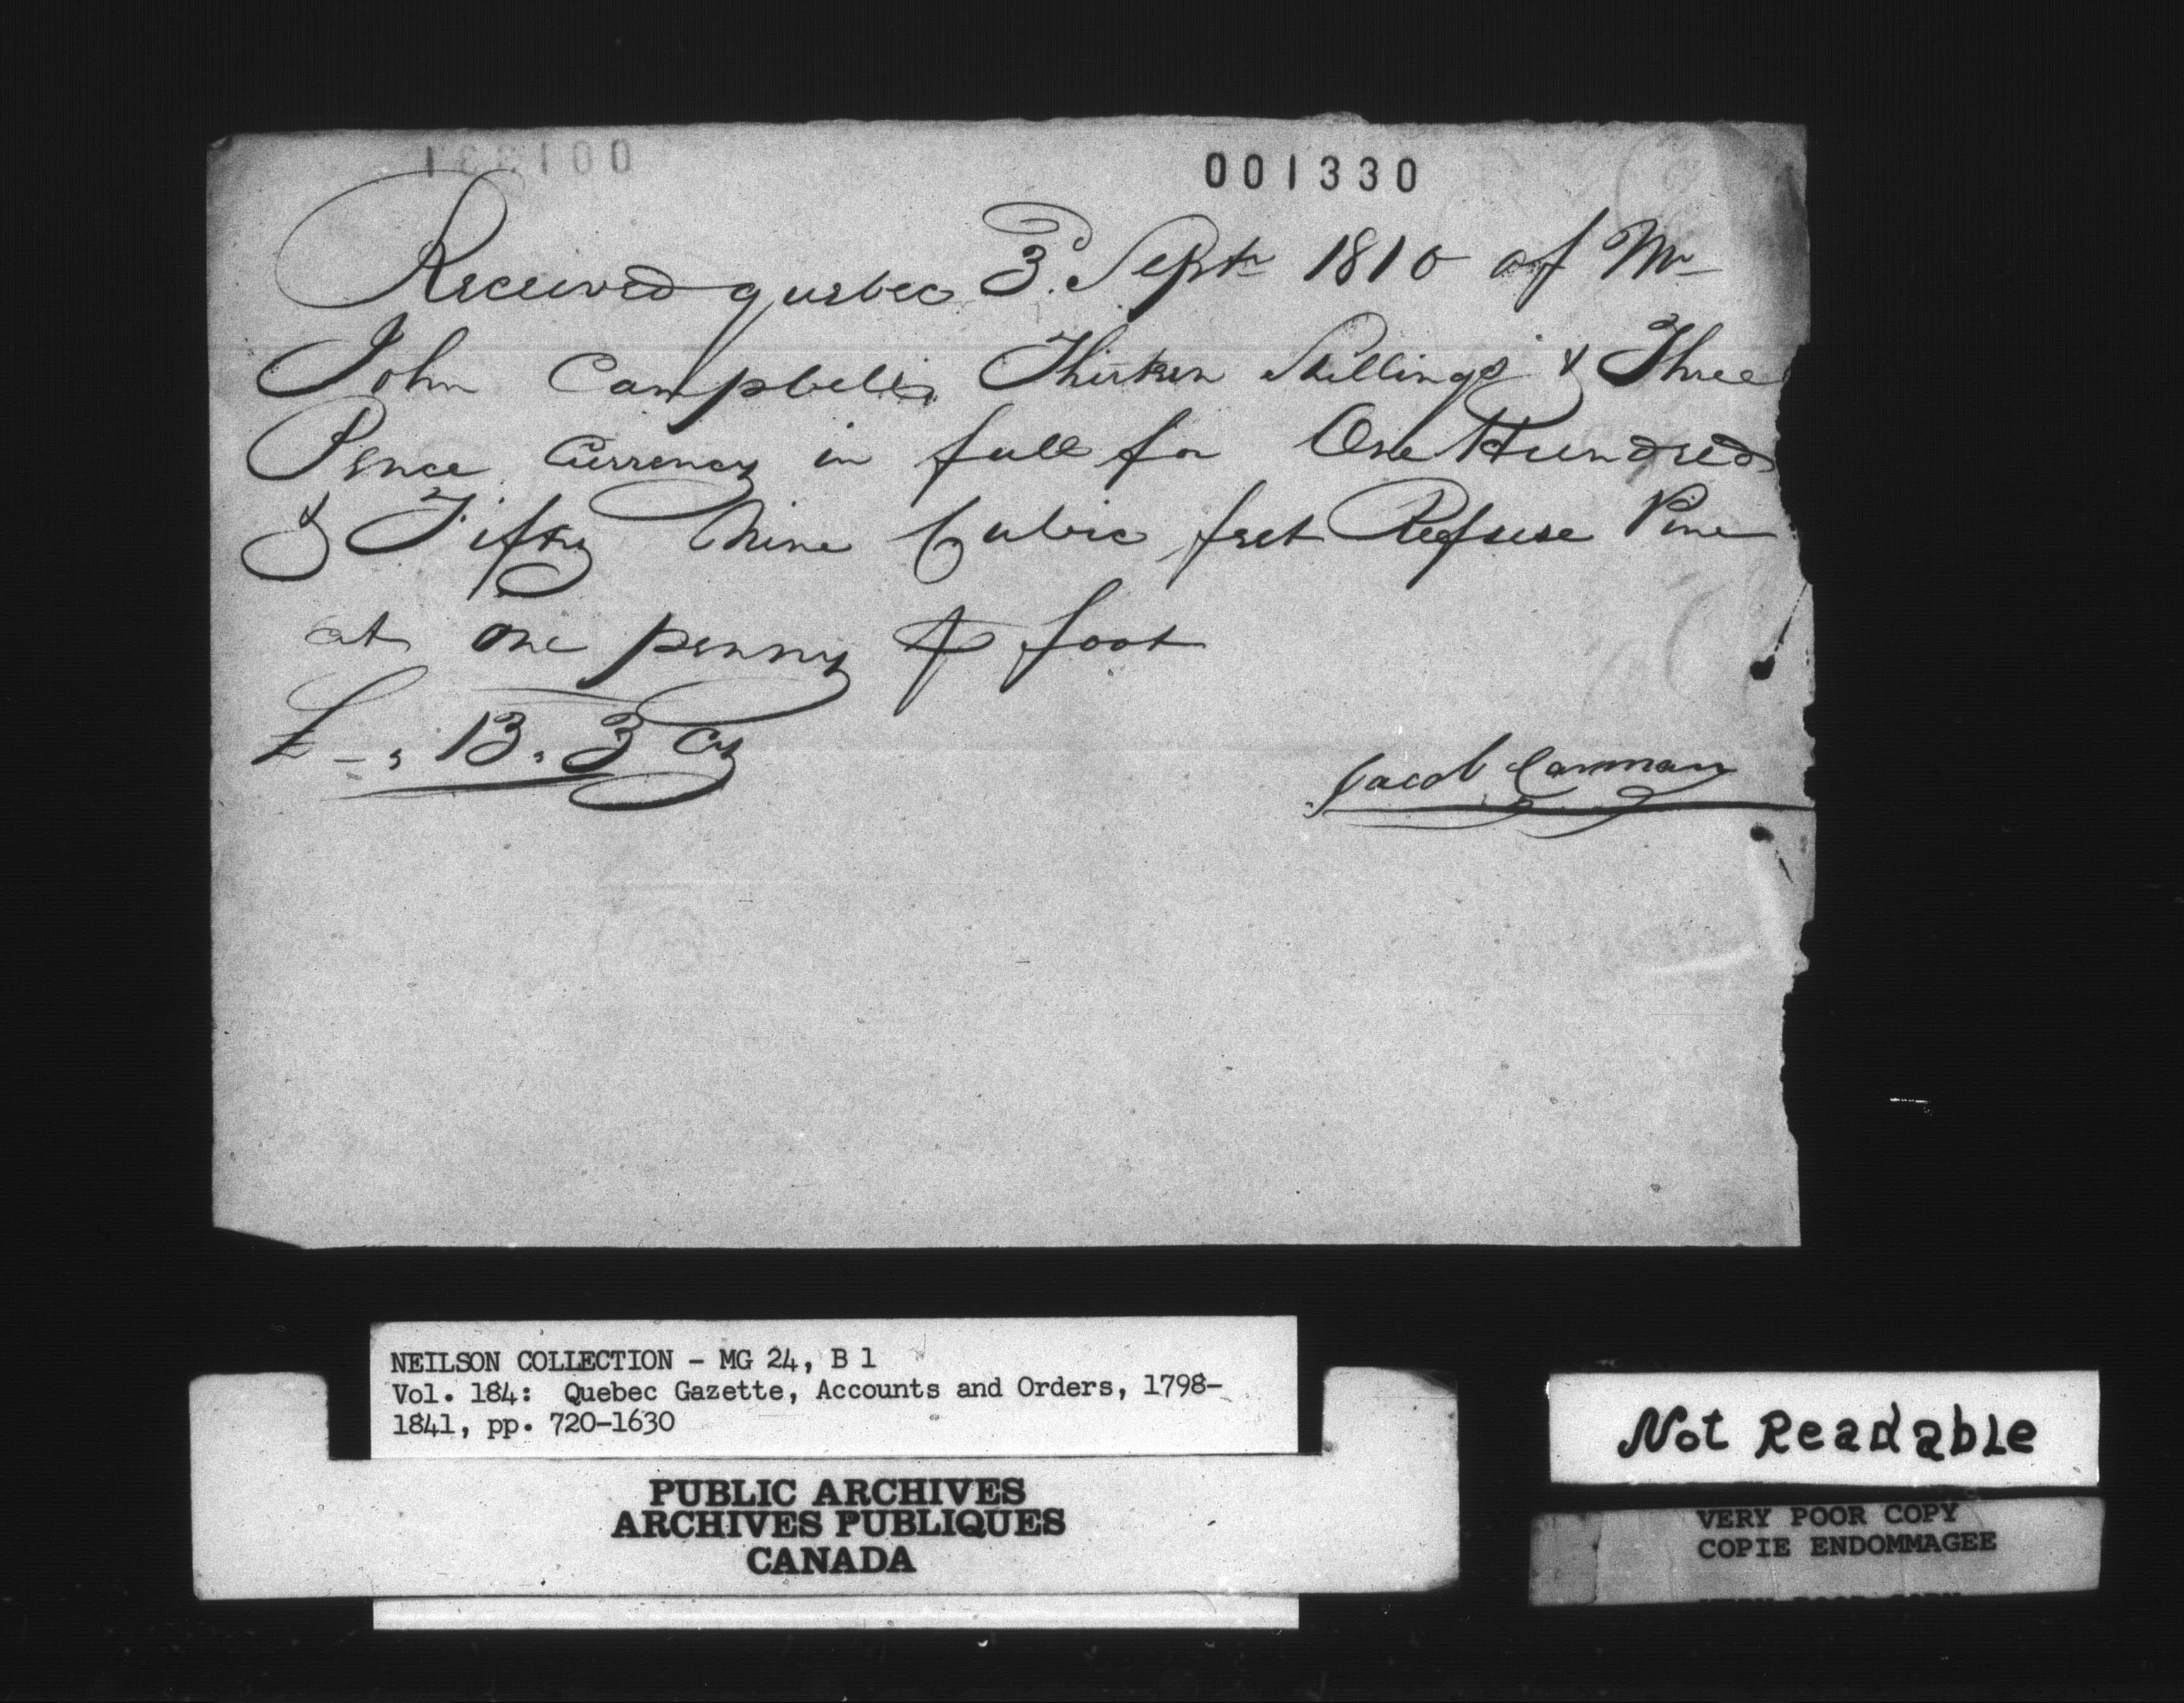 001330
Received quebec 3d. Septr 1810 of Mr
John Campbell Thirteen Shillings & Three
Pence Currency in full for One Hundred
& Fifty Nine Cubic feet Refuse Pine
at one penny ⅌ foot
£ - , 13 , 3 Cy
Jacob Carman
NEILSON COLLECTION - MG 24, B 1
Vol. 184: Quebec Gazette, Accounts and Orders, 1798-
1841, pp. 720-1630
PUBLIC ARCHIVES
ARCHIVES PUBLIQUES
CANADA
Not Readable
VERY POOR COPY
COPIE ENDOMMAGEE